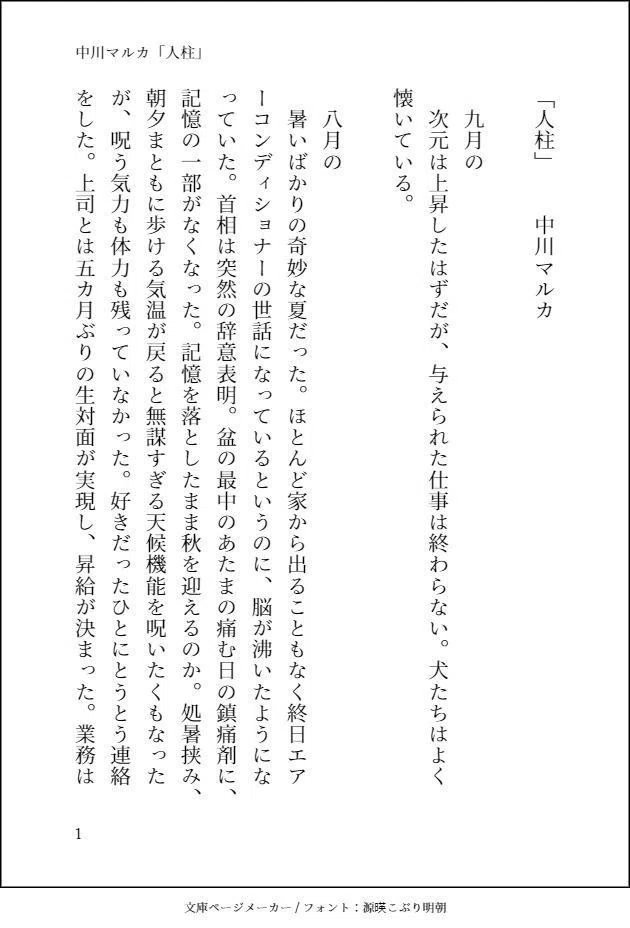 中川マルカ「人柱」
「人柱」　中川マルカ
九月の
次元は上昇したはずだが、与えられた仕事は終わらない。犬たちはよく
懐いている。
八月の
暑いばかりの奇妙な夏だった。ほとんど家から出ることもなく終日エア
ーコンディショナーの世話になっているというのに、脳が沸いたようにな
っていた。首相は突然の辞意表明。盆の最中のあたまの痛む日の鎮痛剤に、
記憶の一部がなくなった。記憶を落としたまま秋を迎えるのか。処暑挟み、
朝夕まともに歩ける気温が戻ると無謀すぎる天候機能を呪いたくもなった
が、呪う気力も体力も残っていなかった。好きだったひとにとうとう連絡
をした。上司とは五カ月ぶりの生対面が実現し、昇給が決まった。業務は
1
文庫ページメーカー / フォント：源暎こぶり明朝